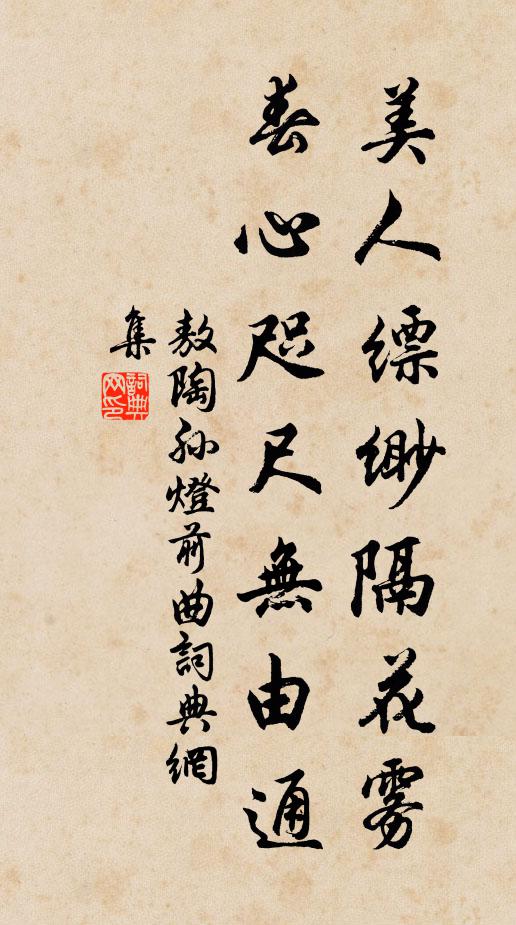 美人缥缈隔花雾
春心咫尺無由通
敖陶孫燈前曲詞典網
集
詞典
网印